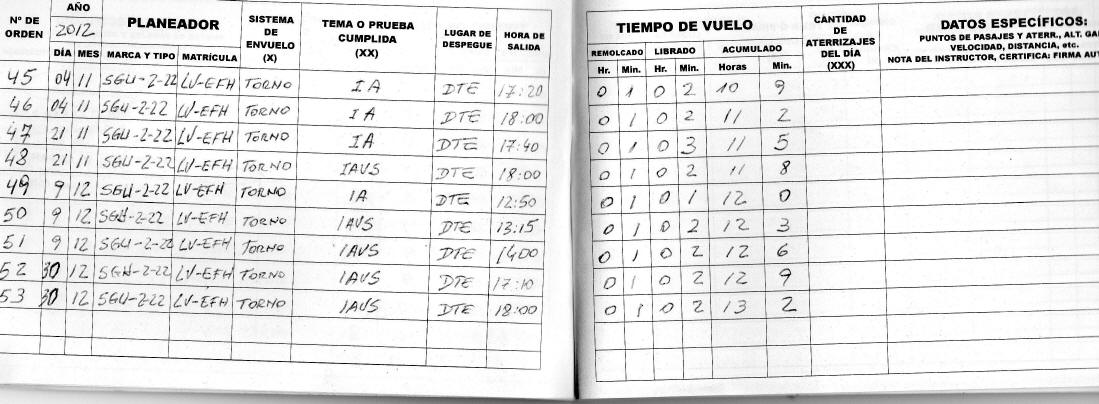 Nº DE ORDEN AÑO 2012 PLANEADOR SISTEMA DE ENVUELO (X) TEMA O PRUEBA CUMPLIDA (XX) LUGAR DE DESPEGUE HORA DE SALIDA
DÍA MES MARCA Y TIPO MATRÍCULA
45 04 11 SGU-2-22 LV-EFH TORNO IA DTE 17:20
46 04 11 SGU-2-22 LV-EFH TORNO IA DTE 18:00
47 21 11 SGU-2-22 LV-EFH TORNO IA DTE 17:40
48 21 11 SGU-2-22 LV-EFH TORNO IAVS DTE 18:00
49 9 12 SGU-2-22 LV-EFH TORNO IA DTE 12:50
50 9 12 SGU-2-22 LV-EFH TORNO IAVS DTE 13:15
51 9 12 SGU-2-22 LV-EFH TORNO IAVS DTE 1400
52 30 12 SGU-2-22 LV-EFH TORNO IAVS DTE 17:10
53 30 12 SGU-2-22 LV-EFH TORNO IAVS DTE 18:00
TIEMPO DE VUELO CANTIDAD DE ATERRIZAJES DEL DÍA (XXX) DATOS ESPECÍFICOS:
PUNTOS DE PASAJES Y ATERR., ALT. GA
VELOCIDAD, DISTANCIA, etc.
NOTA DEL INSTRUCTOR, CERTIFICA: FIRMA AU
REMOLCADO LIBRADO ACUMULADO
Hr. Min. Hr. Min. Horas Min.
0 1 0 2 10 9
0 1 0 2 11 2
0 1 0 3 11 5
0 1 0 2 11 8
0 1 0 1 12 0
0 1 0 2 12 3
0 1 0 2 12 6
0 1 0 2 12 9
0 1 0 2 13 2